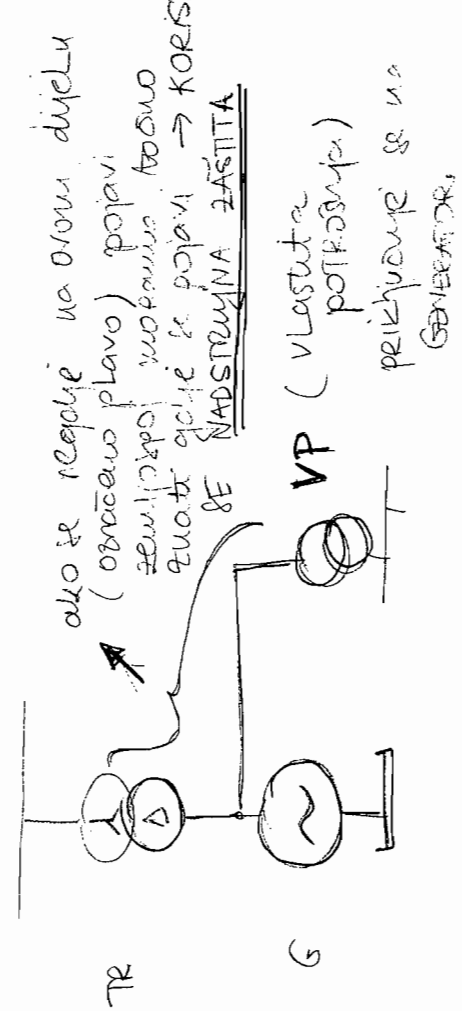 ako se negdje na ovom dijelu
(označeno plavo) pojavi
zemljospoj moramo točno
znati gdje se pojavi → KORIS
SE NADSTRUJNA ZAŠTITA
TR
G
VP (vlastita
potrošnja)
priključuje se na
GENERATOR.